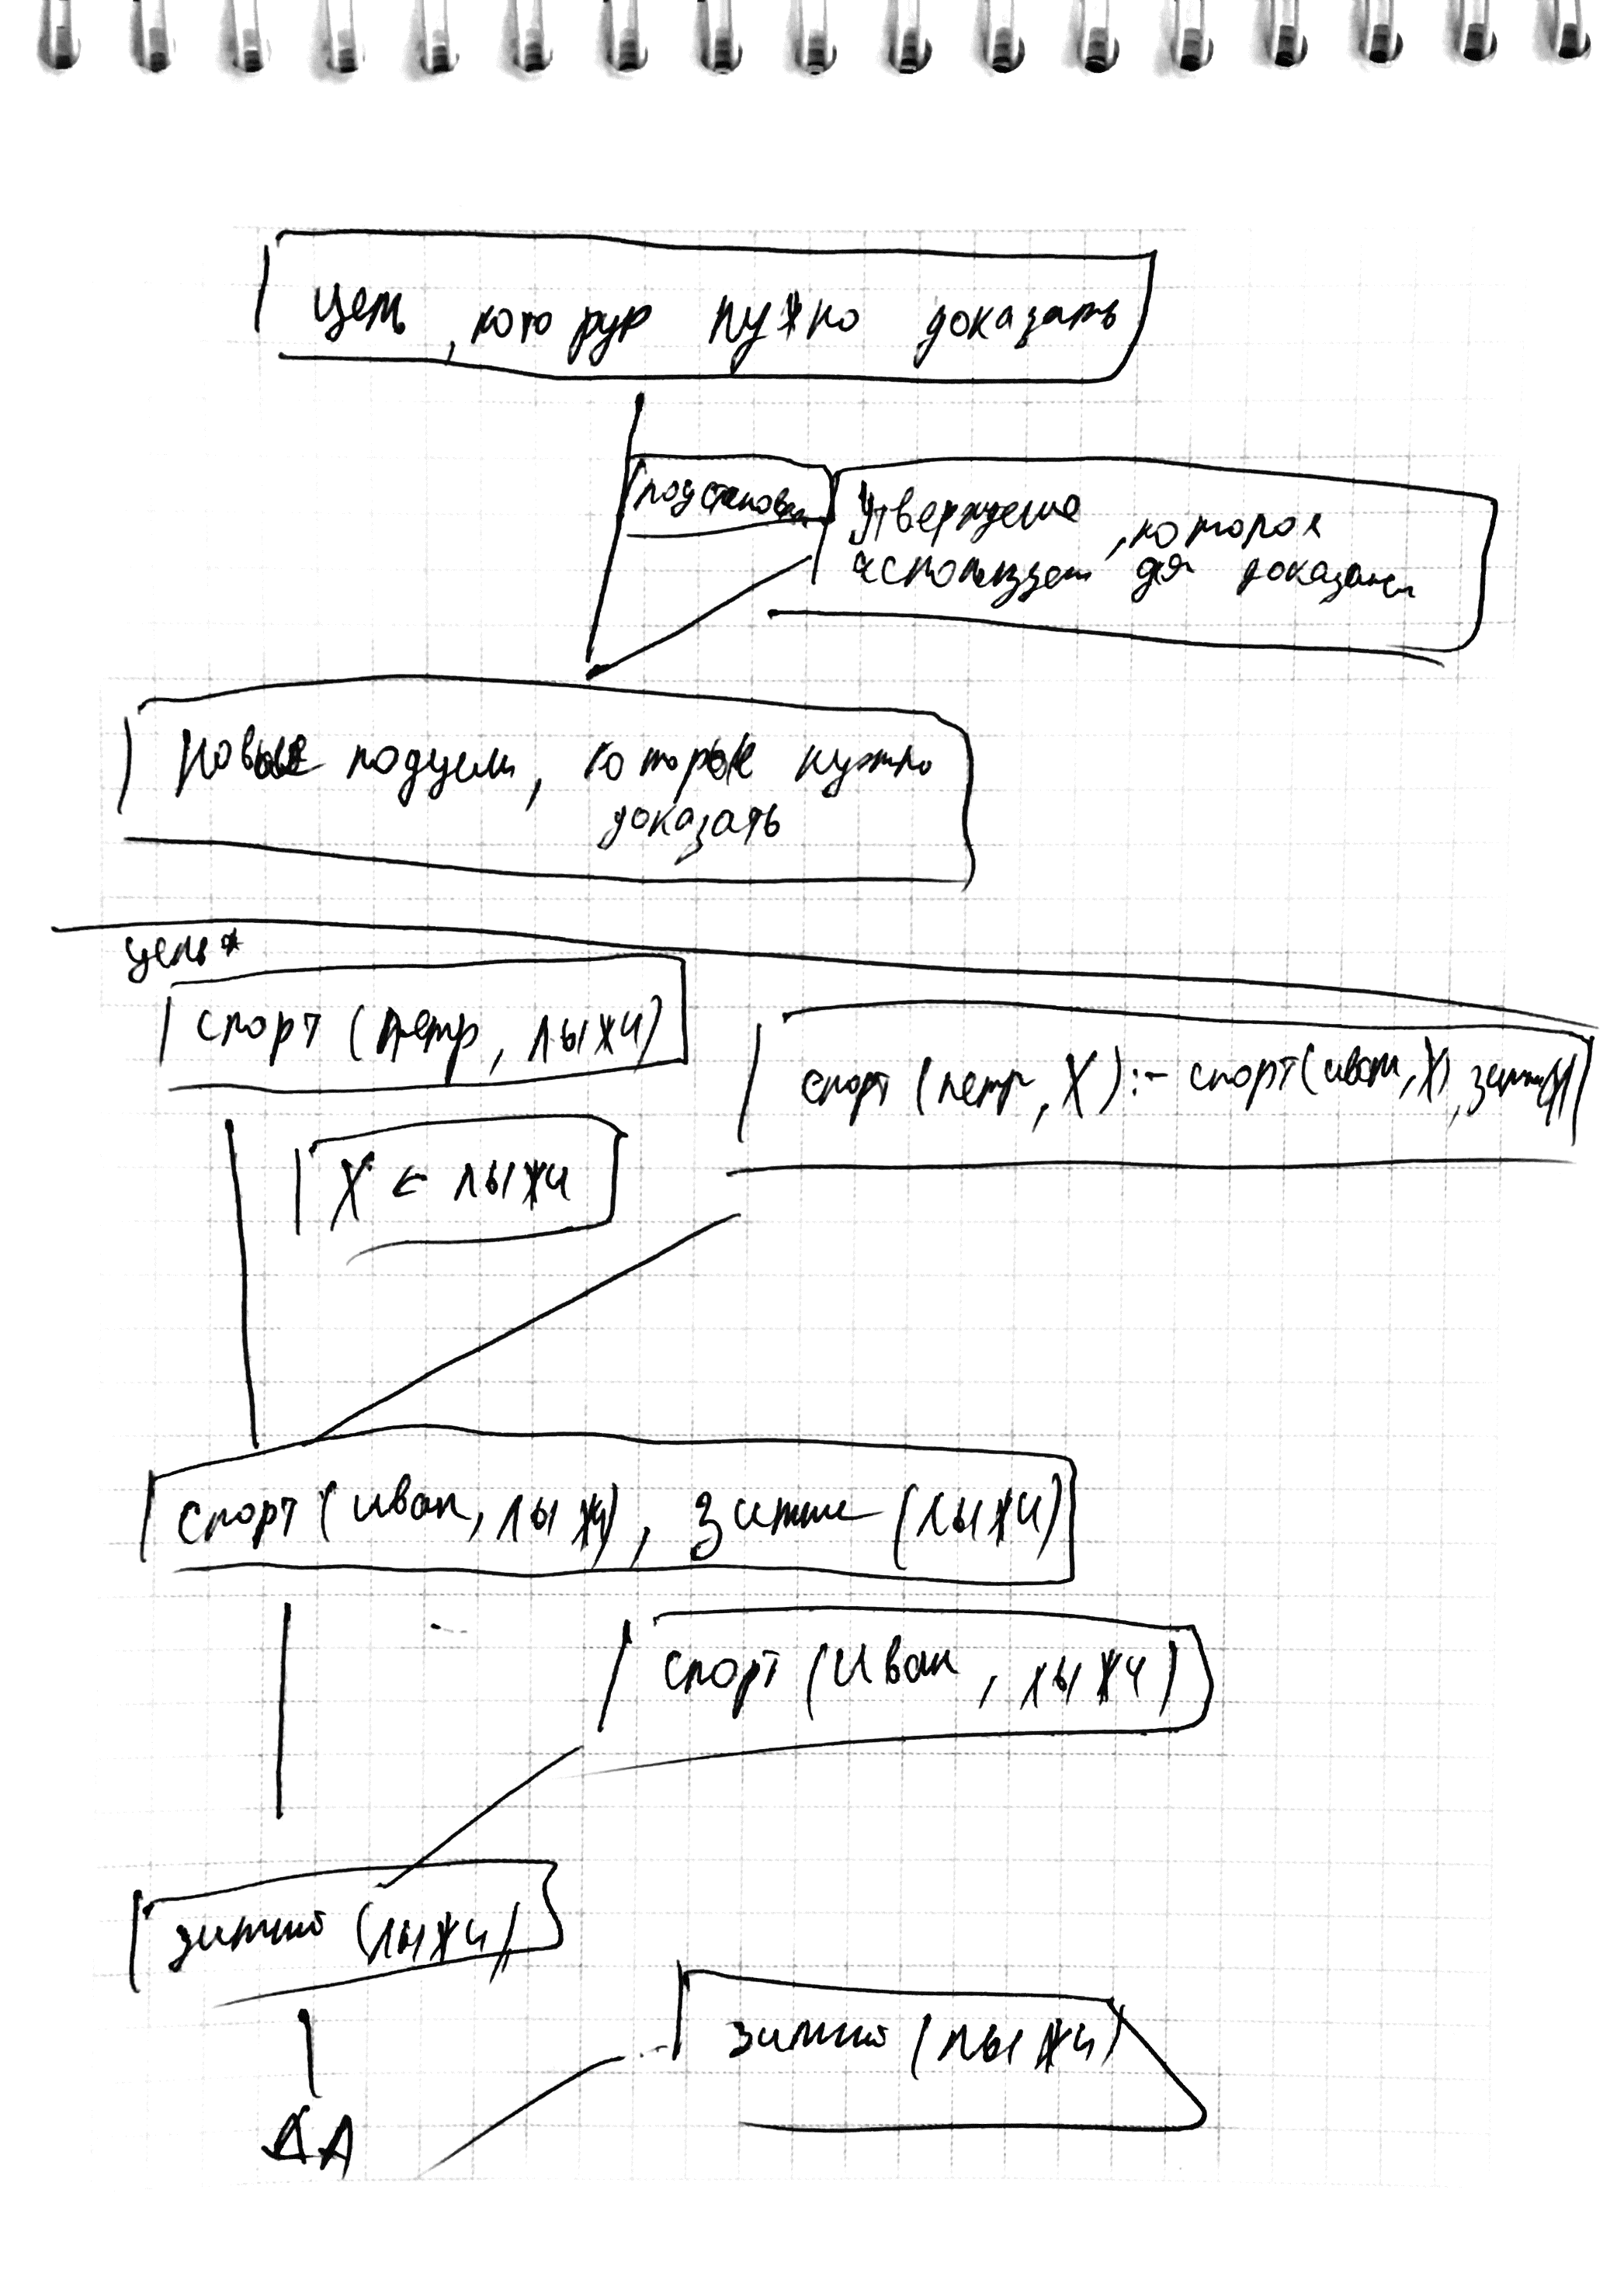 цель, которую нужно доказать
подстановка
Утверждение, которое
используем для доказания
Новые подцели, которые нужно
доказать
цель*
спорт (петр, лыжи)
спорт (петр, X) :- спорт(иван, X), зимний(X)
X ← лыжи
спорт (иван, лыжи), зимний (лыжи)
спорт (Иван, лыжи)
зимний (лыжи)
зимний (лыжи)
ДА